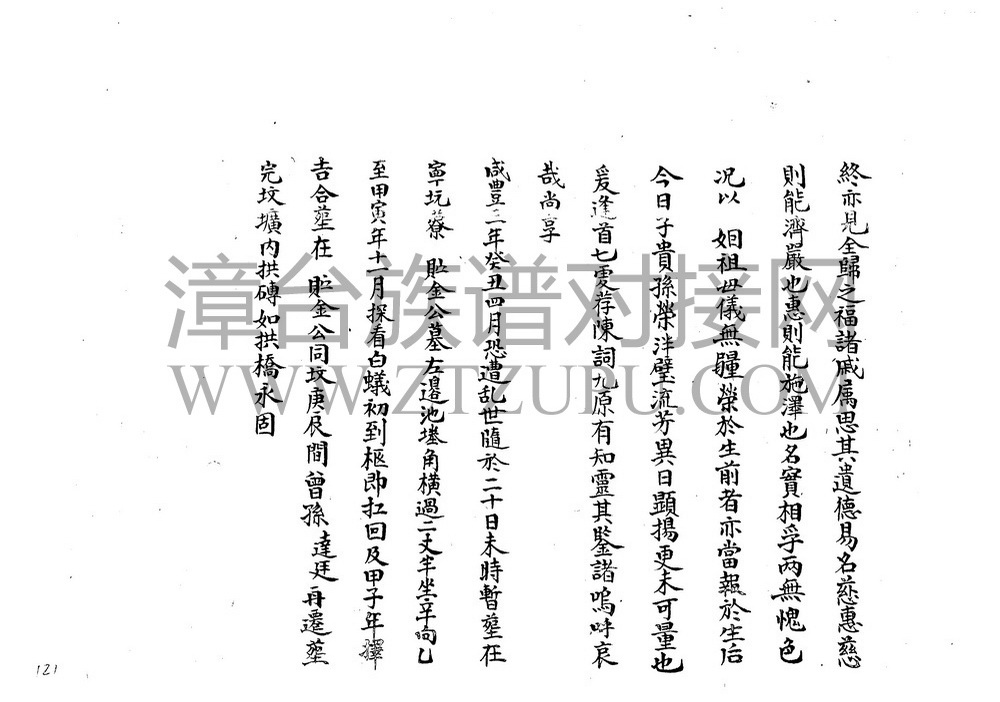 終亦見全歸之福諸戚属思其遺德易名慈惠慈
則能濟嚴也惠則能施澤也名實相孚两無愧色
况以 姻祖母儀無疆榮於生前者亦當報於生后
今日子貴孫榮泮璧流芳異日顕揚更未可量也
爰逢首七虔荐陳詞九原有知靈其鑒諸嗚呼哀
哉尚享
咸豊三年癸丑四月恐遭乱世隨於二十日未時暫塟在
寧坑藔 貯金公墓左邉池墘角横過二丈半坐辛向乙
至甲寅年十一月探看白蟻初到柩即扛回及甲子年擇
吉合塟在 貯金公同坟庚辰間曾孫達廷再遷塟
完坟壙内拱磚如拱橋永固
漳台族谱对接网
WWW.ZTZUPU.COM
121